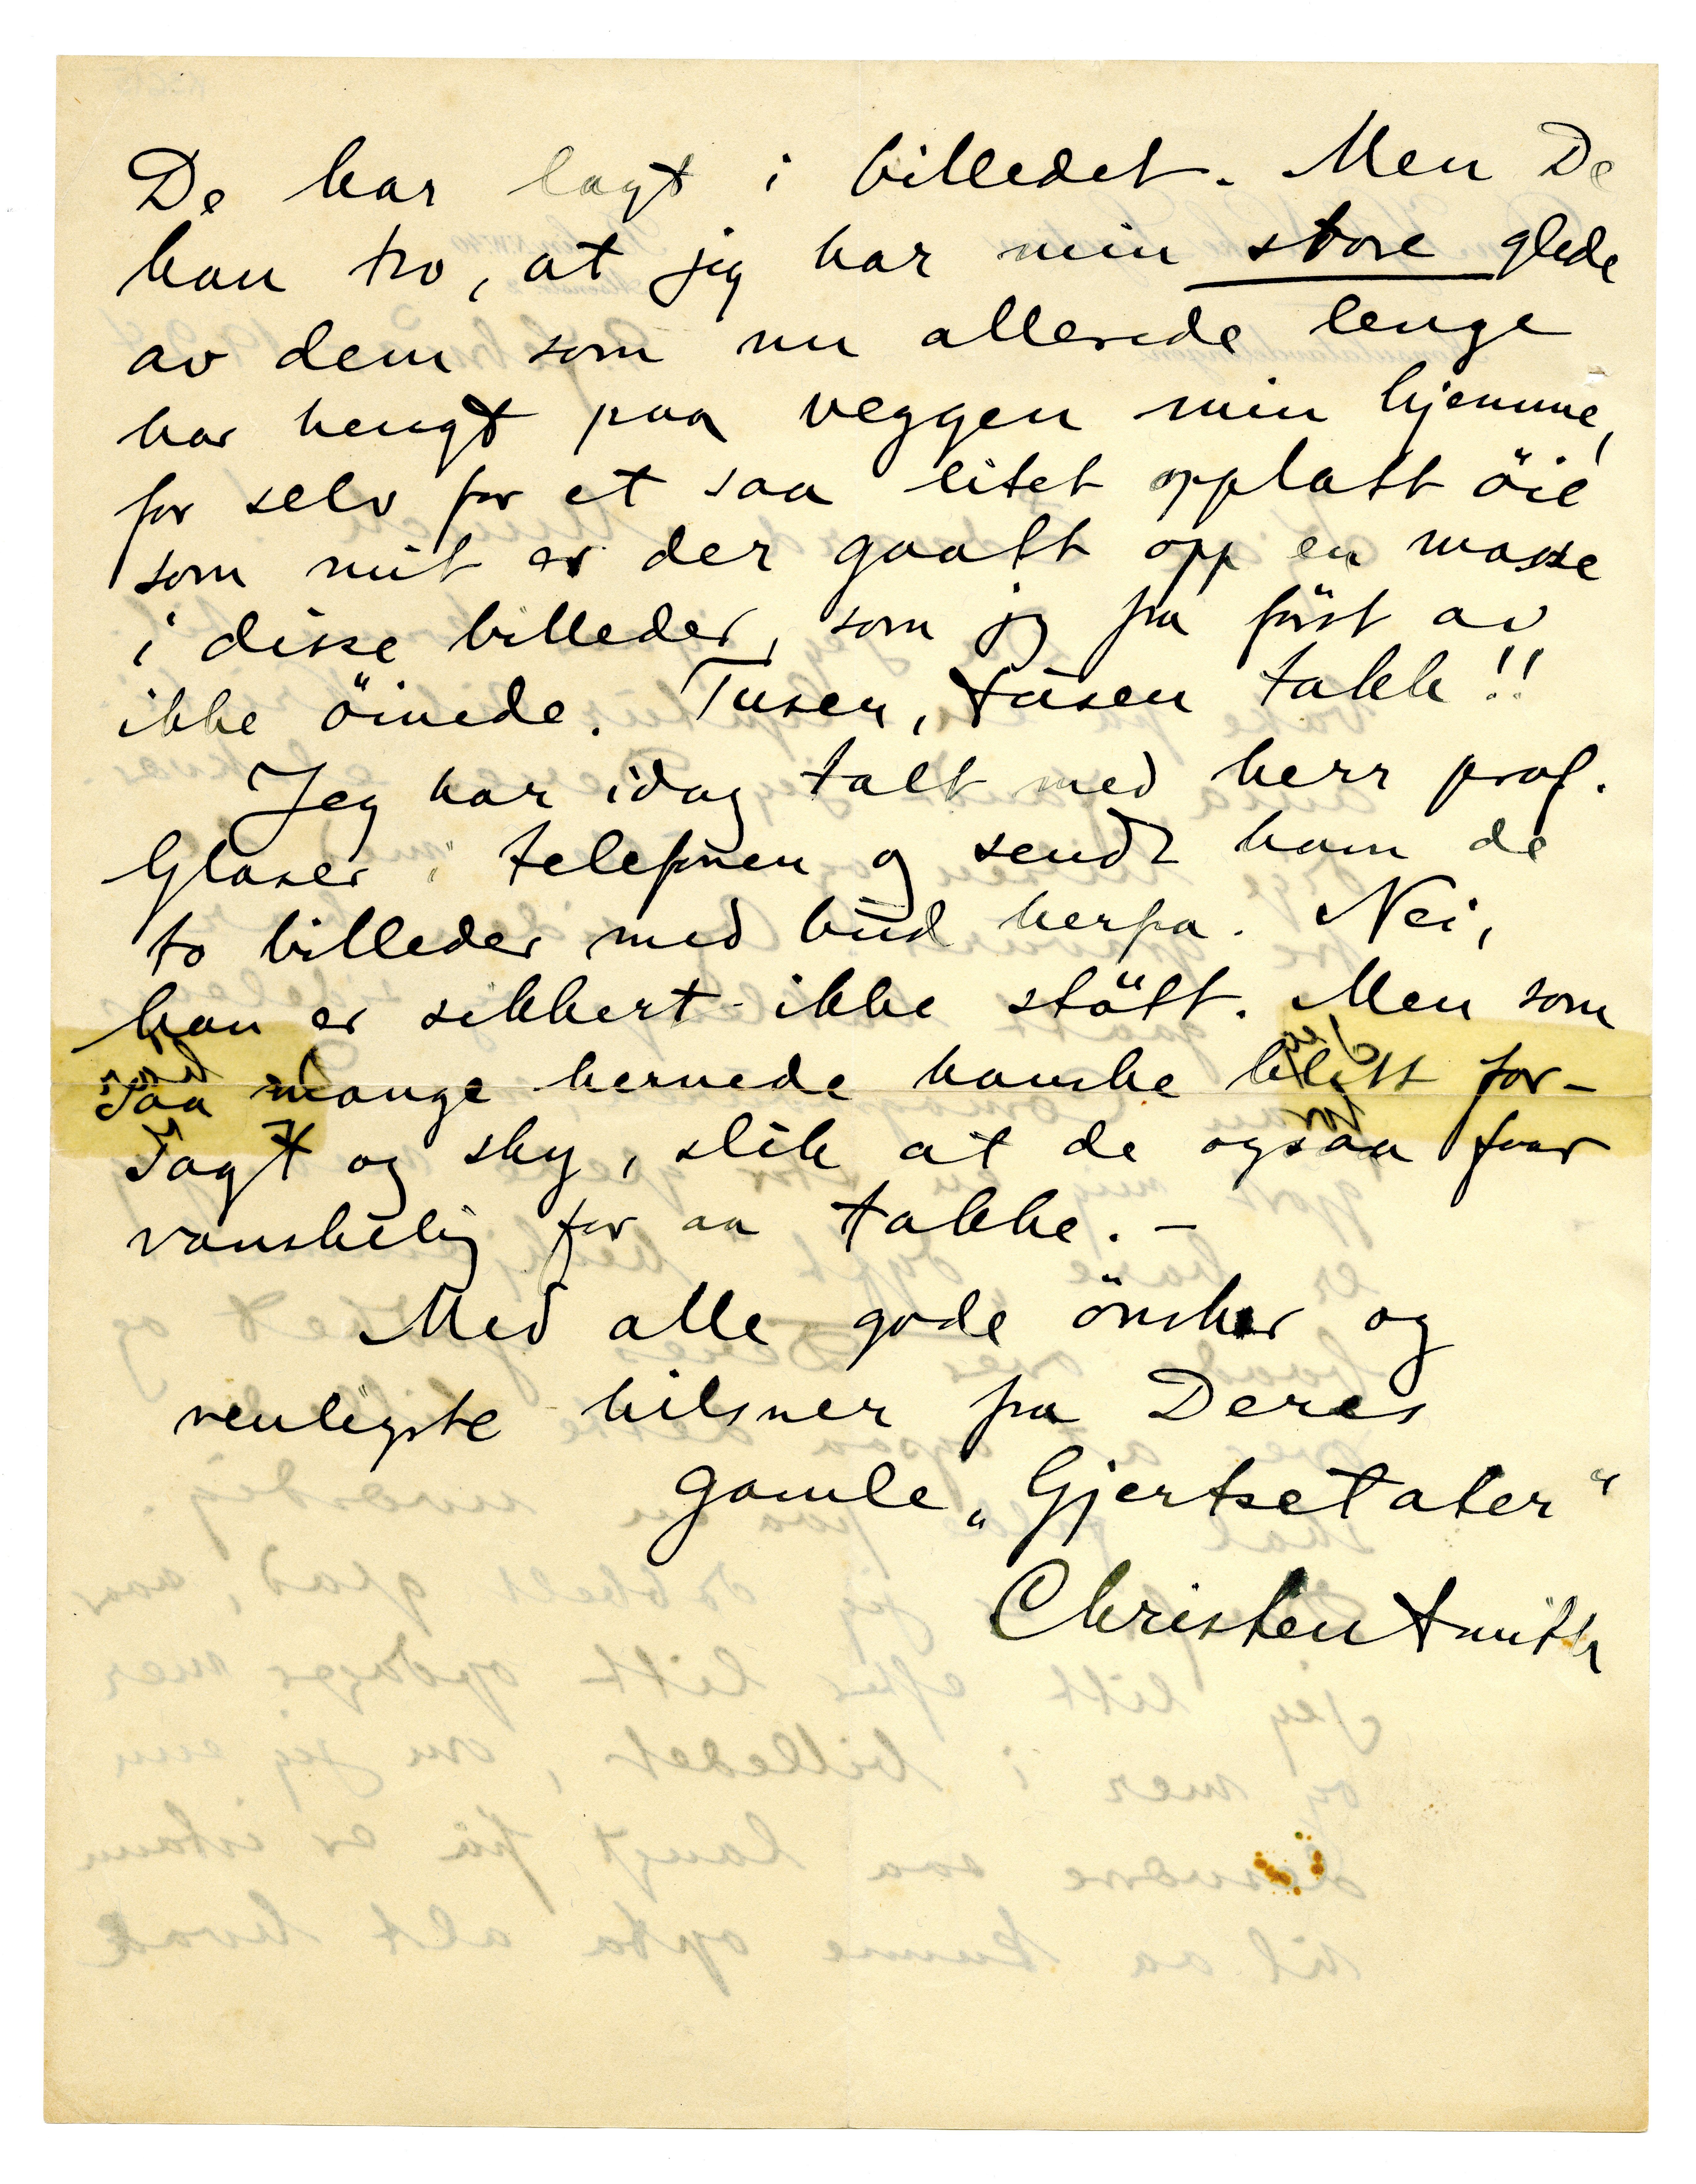 De har lagt i billedet. Men De
kan tro, at jeg har min store glede
av dem som nu allerede lenge
har hengt paa veggen min hjemme,
for selv for et saa litet opplatt öie
som mit er der gaatt opp en masse
i disse billeder, som jeg fra först av
ikke öinede. Tusen, tusen takk!!
Jeg har idag talt med herr prof.
Glaser i telefonen og sendt ham de
to billeder med bud herfra. Nei,
han er sikkert ikke stött. Men som
saa mange hernede kanske blitt for-
jagt og sky, slik at de ogsaa faar
vanskelig for aa takke. –
Med alle gode önsker og
venligste hilsner fra Deres
gamle „Gjertsetater“
Christen Smith